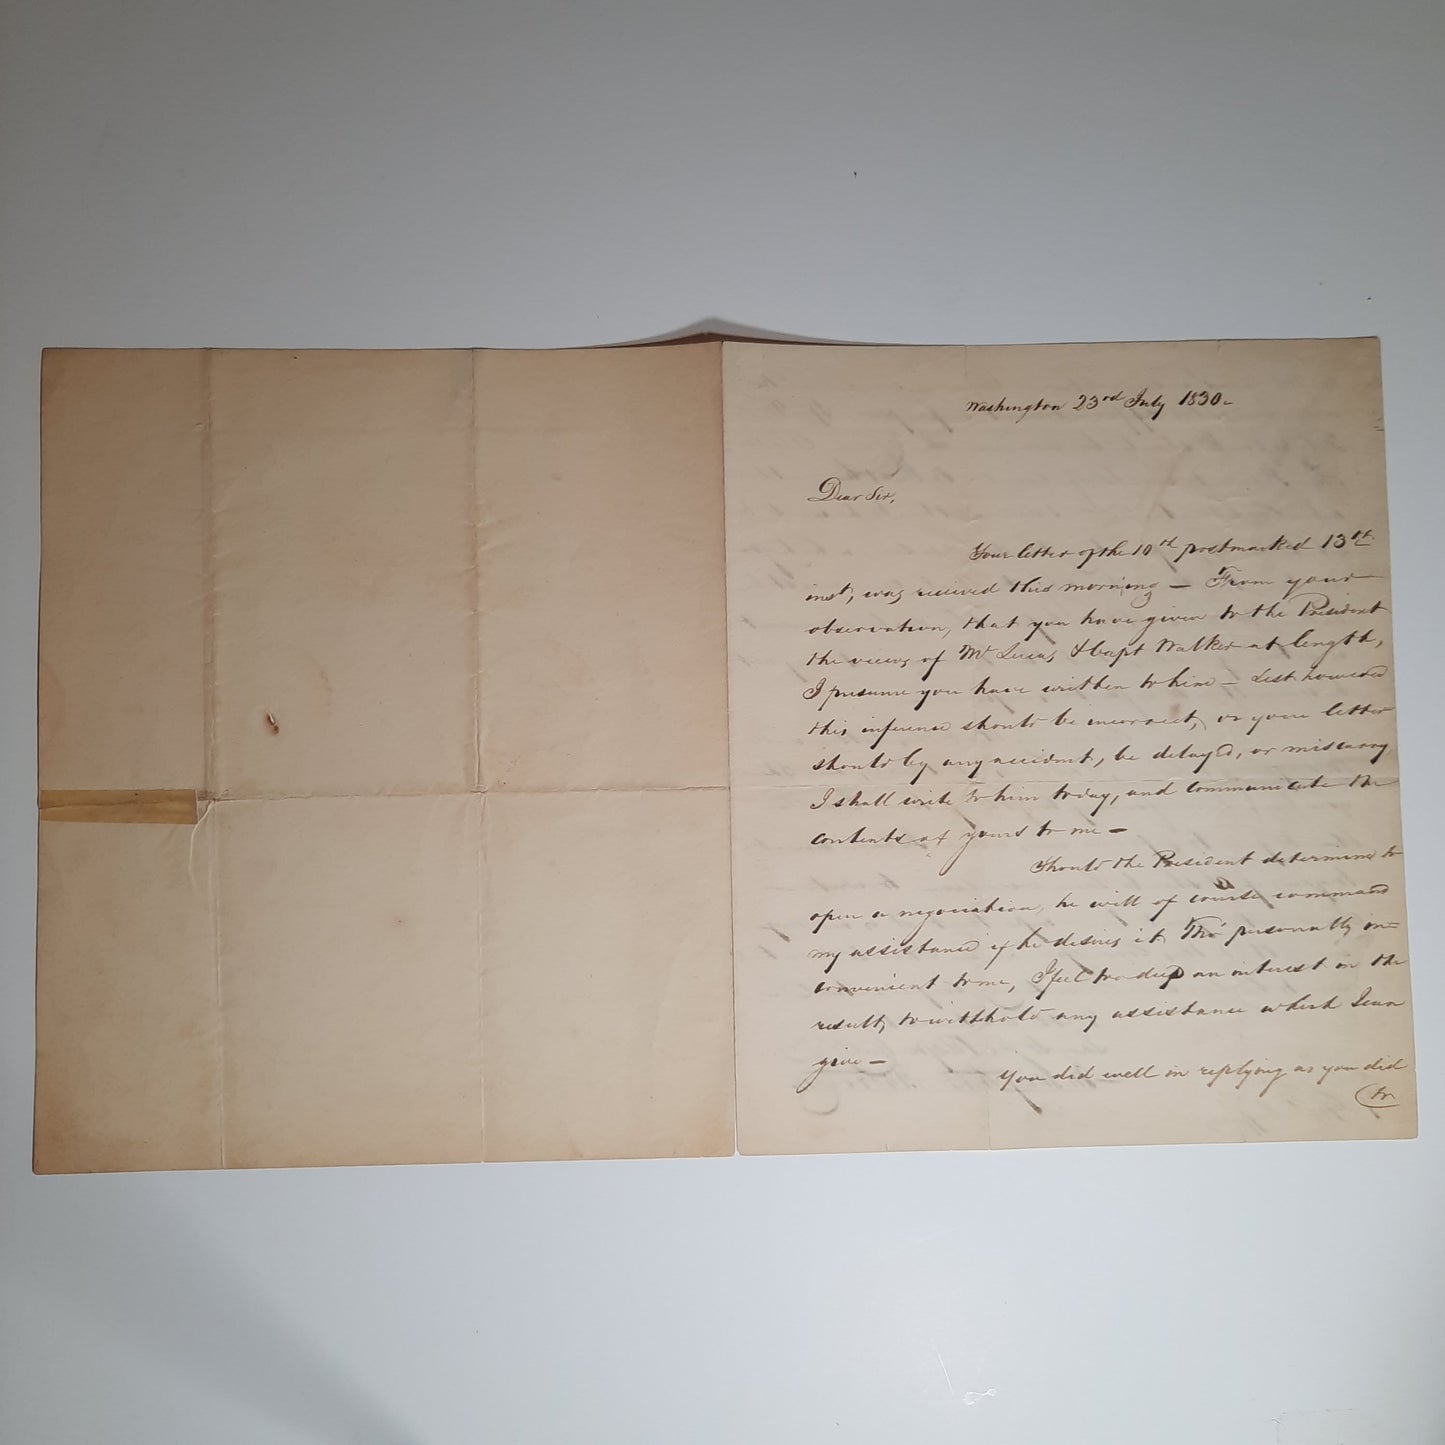 Washington 23rd July 1830.
Dear Sir,
Your letter of the 10th postmarked 13th
inst, was recieved this morning — From your
observation, that you have given to the President
the views of Mr Lucas, & Capt Walker at length,
I presume you have written to him — Lest however
this inference should be incorrect, or your letter
should by any accident, be delayed, or miscarry
I shall write to him today, and communicate the
contents of yours to me —
Should the President determine to
open a negociation, he will of course command
my assistance if he desires it. Tho' personally in=
convenient to me, I feel too deep an interest in the
result, to withhold any assistance which I can
give —
You did well in replying as you did
to